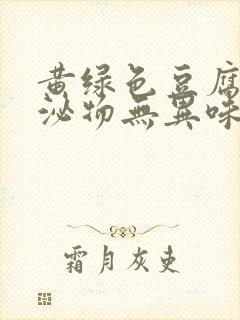 黄绿色豆腐
泌物無異味
霜月灰吏